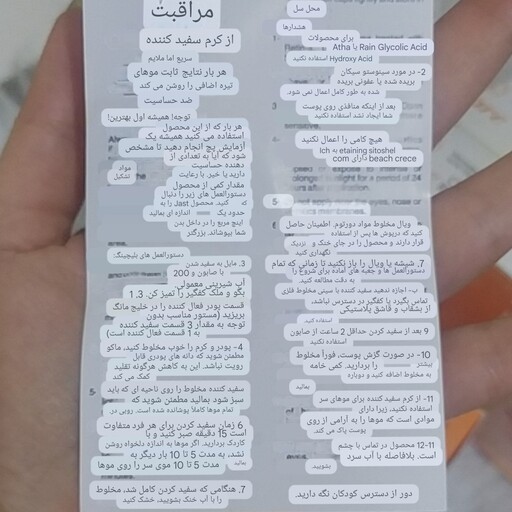 مراقبت
از کرم سفید کننده
سریع اما ملایم
هر بار نتایج ثابت موهای
تیره اضافی را روشن می کند
ضد حساسیت
توجه! همیشه اول بهترین!
هر بار که از این محصول
استفاده می کنید همیشه یک
آزمایش پچ انجام دهید تا مشخص
شود که آیا به تعدادی از
دهنده حساسیت
مواد
تشکیل
دارید یا خیر. با رعایت
مقدار کمی از محصول
دستورالعمل های زیر را دنبال
که کنید. محصول Jast را به
حدود یک اندازه ای بمالید
اینچ مربع را در داخل بدن
شما بپوشاند. بزرگتر
دستورالعمل های بلیچینگ
3. مایل به سفید شدن
با صابون و 200
آب شیرینی معمولی
بگو و ملک کفگیر را تمیز کن. 3. 1
قسمت پودر فعال کننده را در خلیج مانگ
بریزید (دستور مناسب بدون
توجه به مقدار 3 قسمت سفید کننده
به 1 قسمت فعال کننده است)
4- پودر و کرم را خوب مخلوط کنید. ماکو
مطمئن شوید که دانه های پودری قابل
رویت نباشد. این به کاهش هرگونه تقلید
کمک می کند
5- سفید کننده مخلوط را روی ناحیه ای که باید
سبز شود بمالید مطمئن شوید که
تمام موها کاملاً پوشانده شده است. روبی در
6 زمان سفید کردن برای هر فرد متفاوت
است 15 دقیقه صبر کنید و با
کاردک بردارید. اگر موها به اندازه دلخواه روشن
نشد، به مدت 5 تا 10 بار دیگر به
بمالید مدت 5 تا 10 موی سر را روی موها
7. هنگامی که سفید کردن کامل شد، مخلوط
را با آب خنک بشویید. خشک کنید
محل سل
هشدارها
برای محصولات
Atha یا Rain Glycolic Acid
Hydroxy Acid استفاده نکنید
2- در مورد سینوستو سیکان
بریده شده یا عفونی بریده
شده به طور کامل اعمال نمی شود.
بعد از اینکه منافذی روی پوست
شما ایجاد نشد استفاده نکنید
هیچ کامی را اعمال نکنید
Ich به etaining sitoshel
com دارای beach crece
5-
ویال مخلوط مواد دورتوم. اطمینان حاصل
کنید که درپوش ها پس از استفاده
قرار دارند و محصول را در جای خنک و نزدیک
نگهداری کنید
7. شیشه یا ویال را باز نکنید تا زمانی که تمام
دستورالعمل ها و جعبه های آماده برای شروع را
به دقت مطالعه کنید.
ب- اجازه ندهید سفید کننده با سینی مخلوط فلزی
تماس بگیرد یا کفگیر در دسترس نباشد،
از بشقاب و قاشق پلاستیکی
استفاده کنید.
9 بعد از سفید کردن حداقل 2 ساعت از صابون
استفاده نکنید
10- در صورت گزش پوست، فوراً مخلوط
بیشتر را بردارید. کمی خامه
به مخلوط اضافه کنید و دوباره
بمالید
11- از کرم سفید کننده برای موهای سر
استفاده نکنید، زیرا دارای
موادی است که موها را به آرامی از روی
پوست پاک می کند.
11-12 محصول در تماس با چشم
است. بلافاصله با آب سرد
بشویید.
دور از دسترس کودکان نگه دارید.